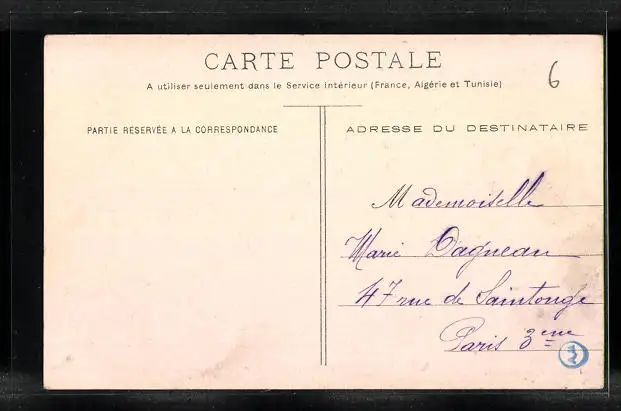 CARTE POSTALE
6
A utiliser seulement dans le Service intérieur (France, Algérie et Tunisie)
PARTIE RÉSERVÉE A LA CORRESPONDANCE
ADRESSE DU DESTINATAIRE
Mademoiselle
Marie Dagneau
47 rue de Saintonge
Paris 3eme